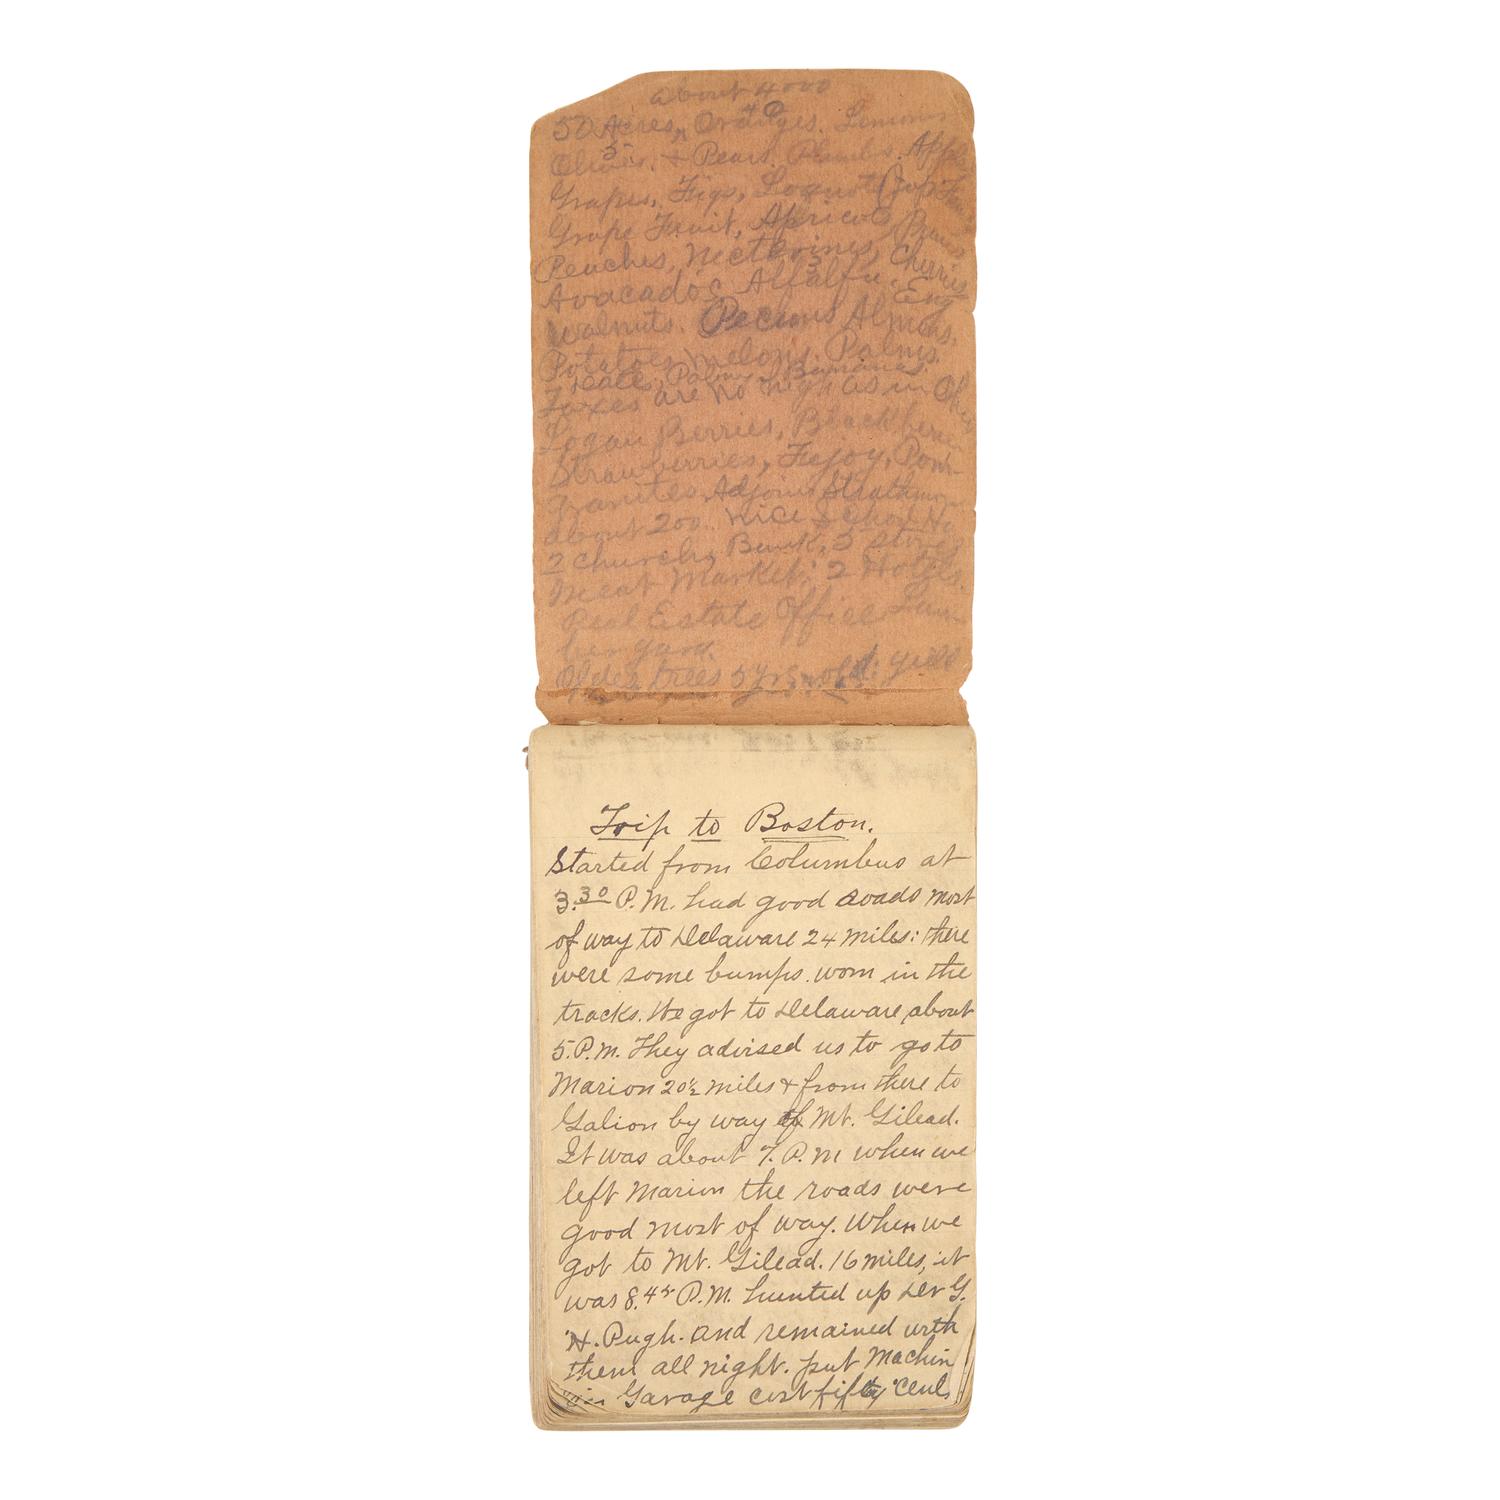 about 4000
50 Acres, Oranges. Lemons
5
Olives. & Pears. Plumbs. Apples
Grapes, Figs, Loquot Jap
Grape Fruit, Apricots
Peaches, Necterines, Cherries
Avacados, Alfalfa. Eng
Walnuts. Pecans Almons.
Potatoes, Melons. Palms.
Date, Palms, Bananas.
Taxes are no high as in Ohio
Logan Berries, Blackberries
Strawberries, Fejoy, Pom-
granites. Adjoins Strathmore
about 200. nice School Ho
2 Churchs, Bank, 3 stores
Meat Market, 2 Hotels.
Real Estate Office Lum-
ber yard.
Older trees 5 yrs old.
Trip to Boston.
Started from Columbus at
3.30 P.M. had good roads most
of way to Delaware 24 miles: there
were some bumps. worn in the
tracks. We got to Delaware about
5. P.M. They advised us to go to
Marion 20½ miles & from there to
Galion by way of Mt. Gilead.
It was about 7. P.M when we
left Marion the roads were
good most of way. When we
got to Mt. Gilead. 16 miles, it
was 8.45 P.M. hunted up Dr G.
H. Pugh. and remained with
them all night. put Machin
in Garage cost fifty Cents